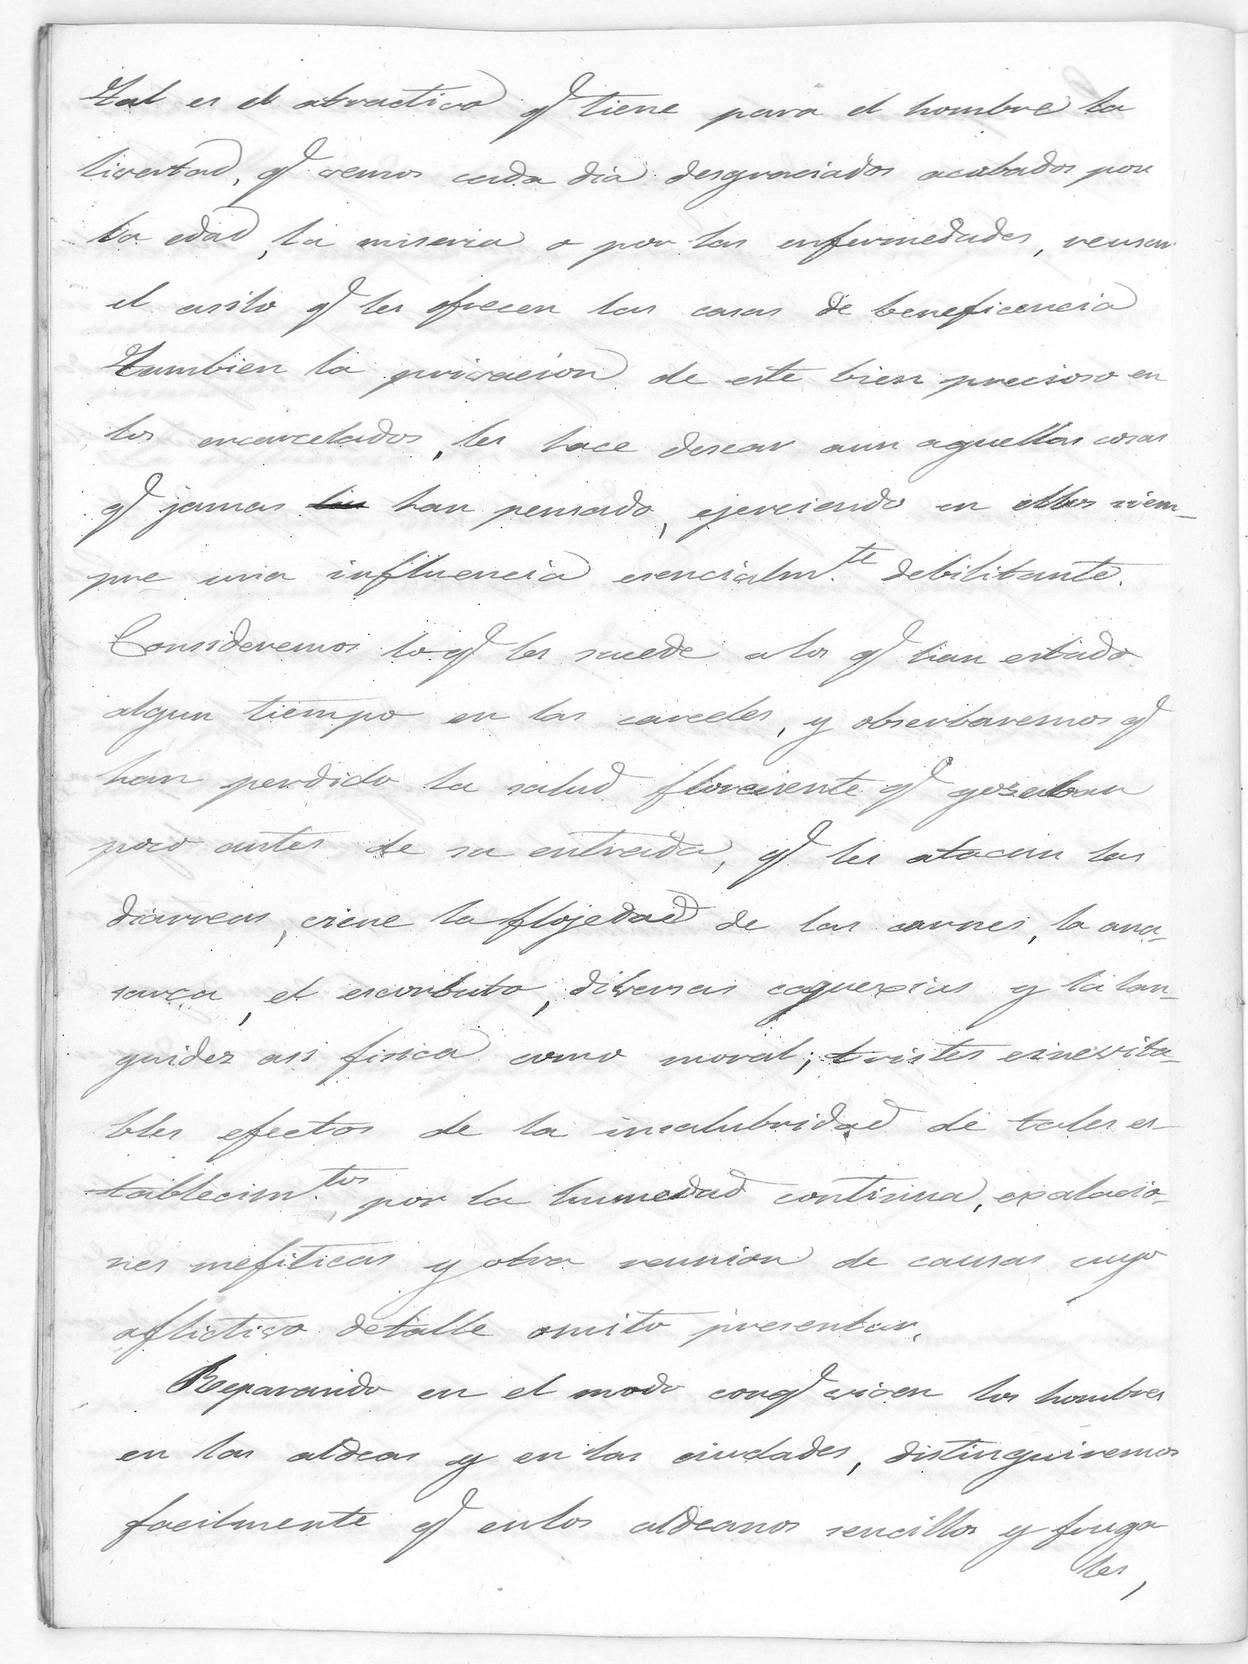 Tal es el atractivo q.e tiene para el hombre la
livertad, q.e vemos cada dia desgraciados acabados por
la edad, la miseria o por las enfermedades, reusar
el asilo q.e les ofrecen las casas de beneficencia
Tambien la privacion de este bien precioso en
los encarcelados, les hace desear aun aquellas cosas
q.e jamas han pensado, ejerciendo en ellos siem-
pre una influencia esencialm.te debilitante.
Consideremos lo q.e les sucede a los q.e han estado
algun tiempo en las carceles, y obserbaremos q.e
han perdido la salud floreciente q.e gozaban
poco antes de su entrada, q.e les atacan las
diarreas, viene la flojedad de las carnes, la ana-
sarca, el escorbuto, diversas caquexias y la lan-
guidez asi fisica como moral; tristes e inevita-
bles efectos de la insalubridad de tales es-
tablecim.tos por la humedad continua, exalacio-
nes mefiticas y otra reunion de causas cuyo
aflictivo detalle omito presentar.
Reparando en el modo conq.e viven los hombres
en las aldeas y en las ciudades, distinguiremos
facilmente q.e en los aldeanos sencillos y fruga
les,